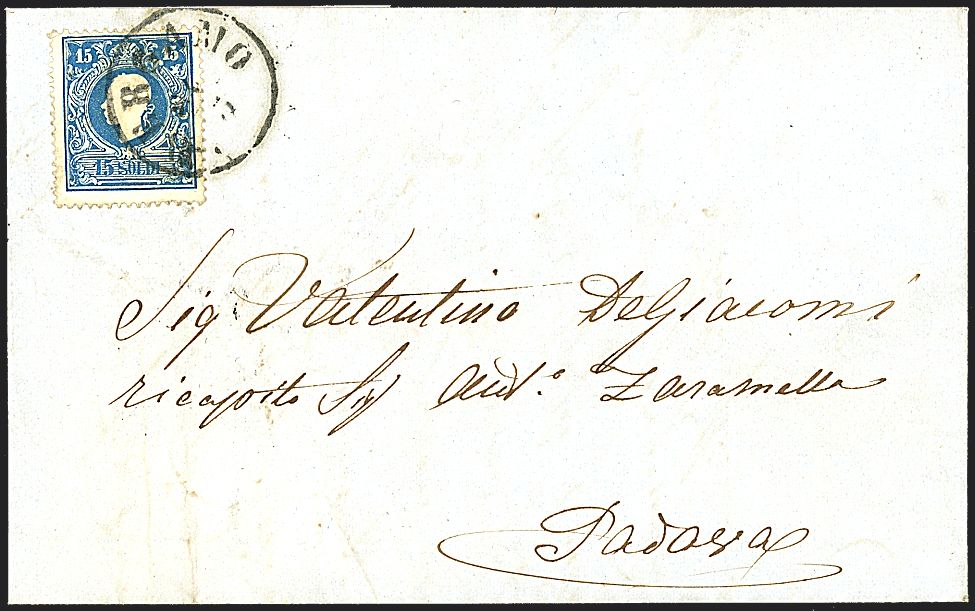 15 15
15 SOLDI
Sig Valentino DeGiacomi
ricapito Sig Ant.o Zaramella
Padova